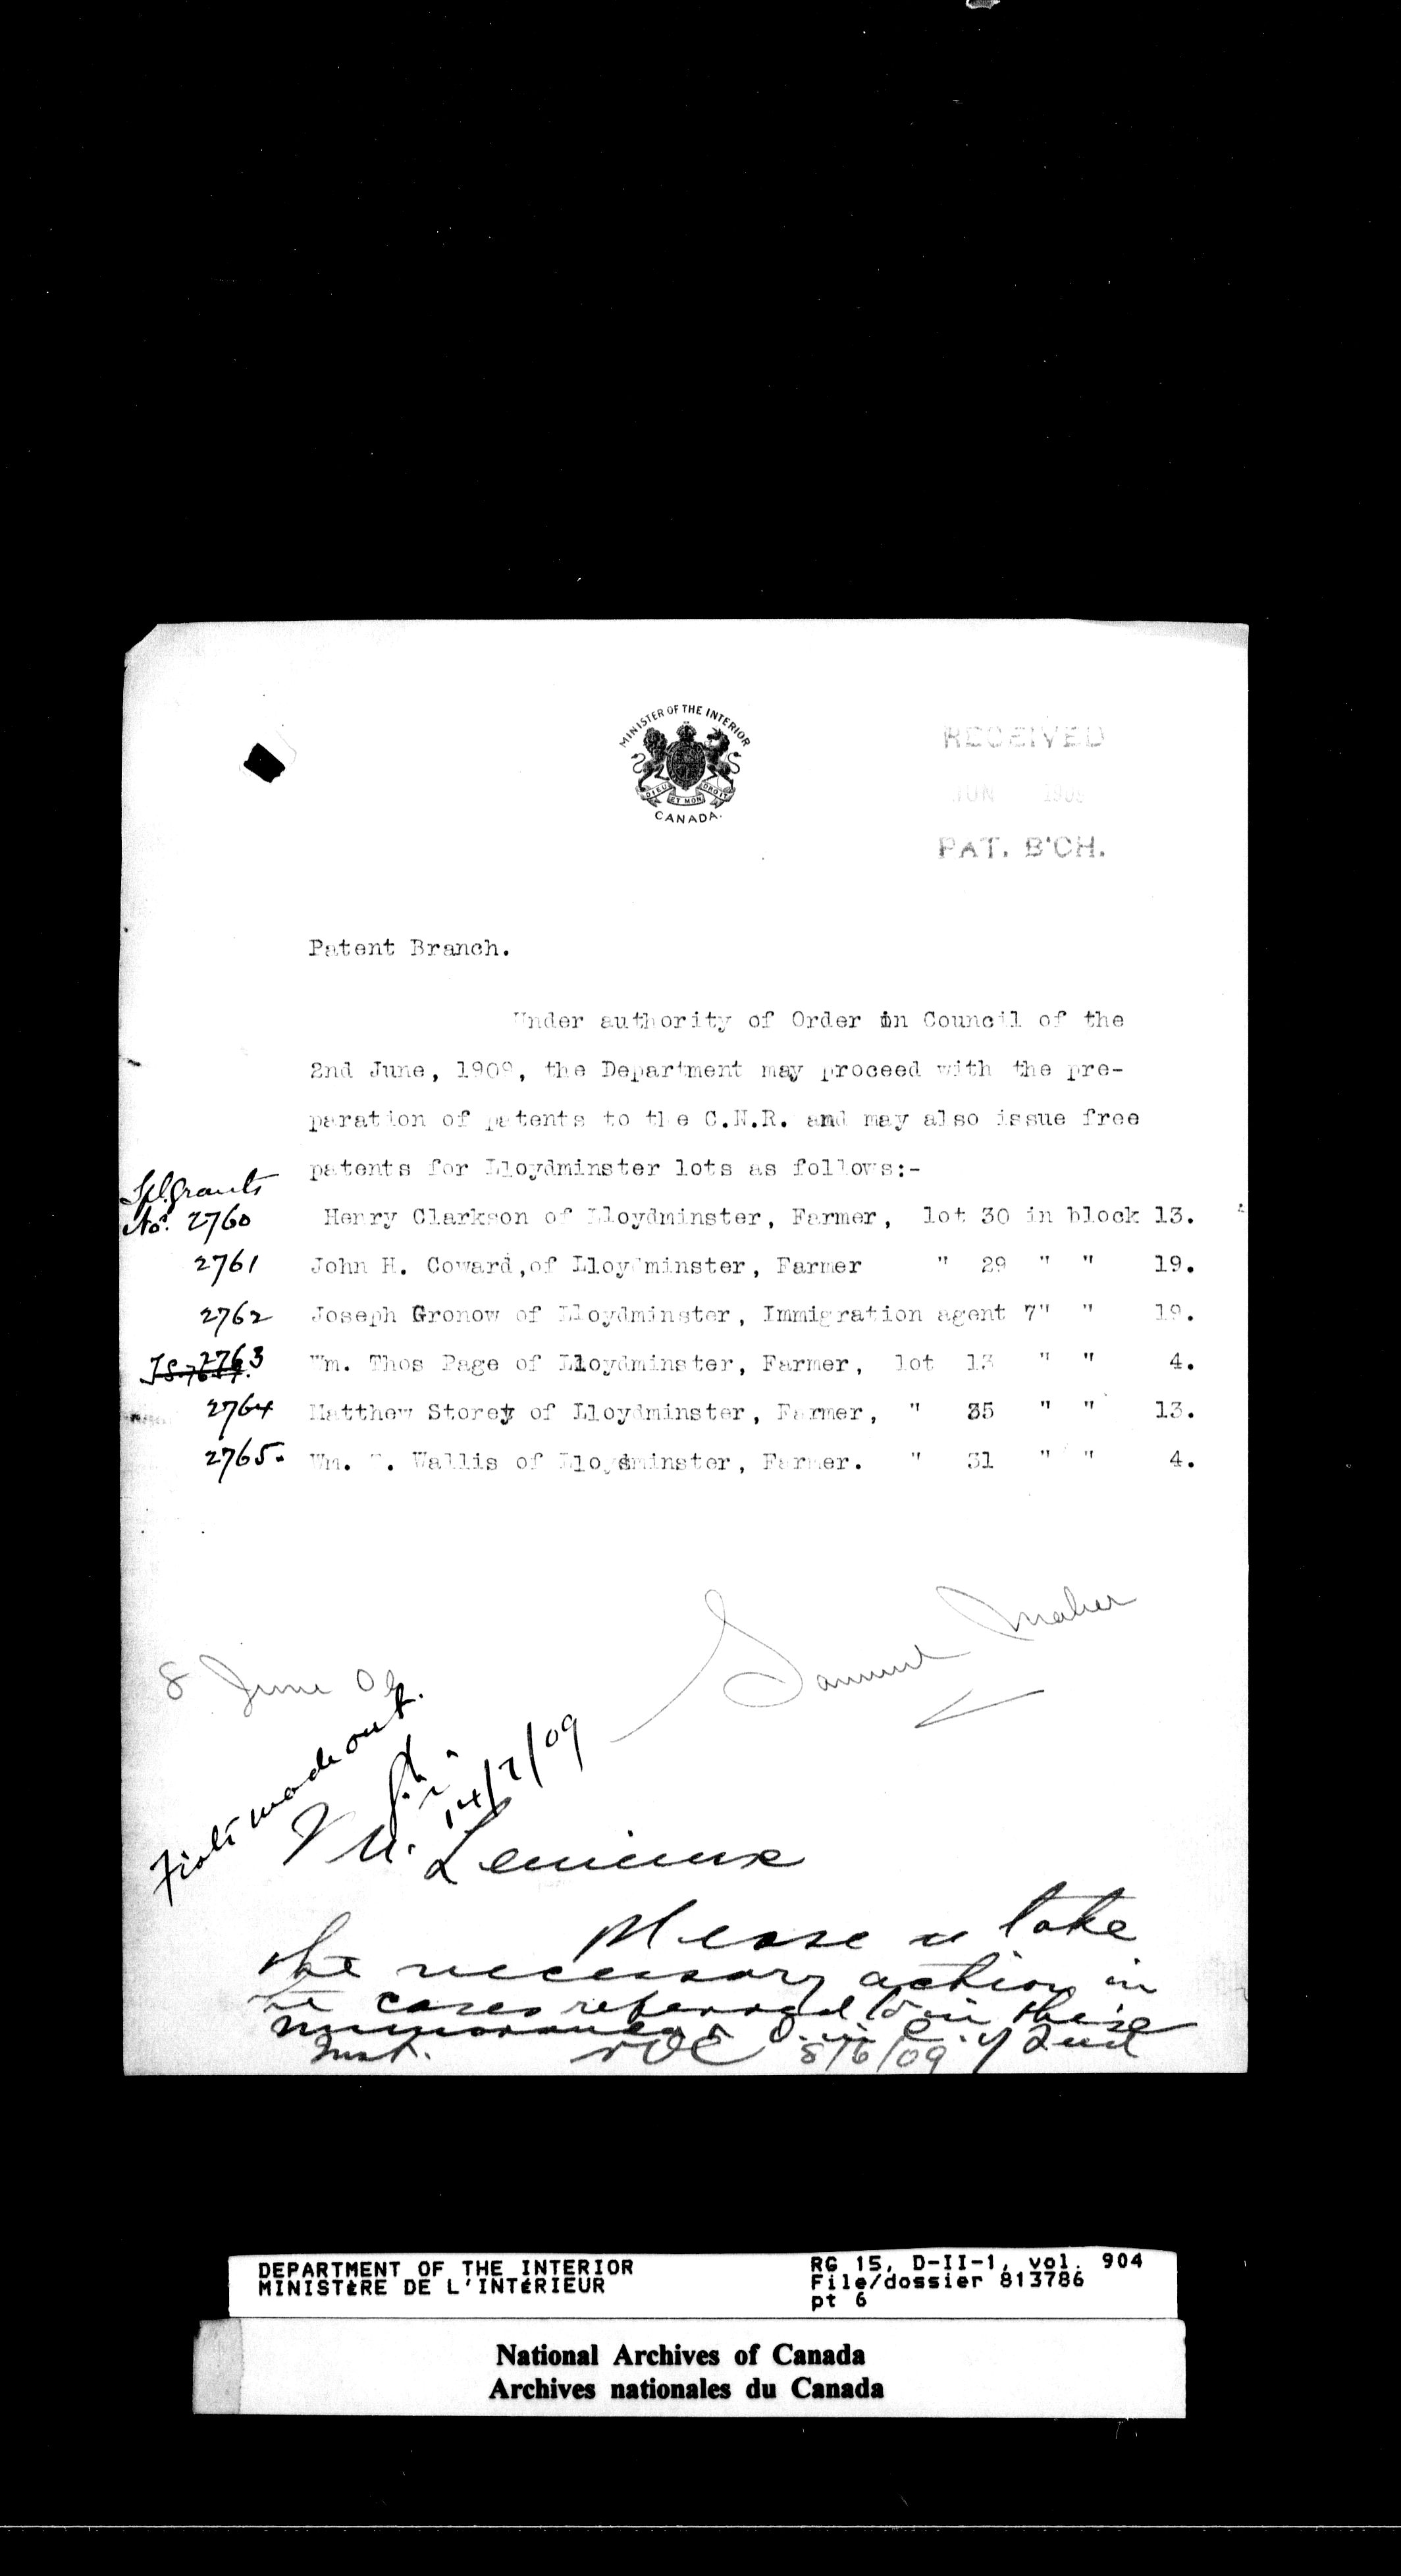 MINISTER OF THE INTERIOR
DIEU ET MON DROIT
CANADA.
RECEIVED
JUN 1909
PAT. B'CH.
Patent Branch.
Under authority of Order in Council of the
2nd June, 1909, the Department may proceed with the pre-
paration of patents to the C.N.R. and may also issue free
patents for Lloydminster lots as follows:-
Spl. Grants
No. 2760 Henry Clarkson of Lloydminster, Farmer, lot 30 in block 13.
2761 John H. Coward, of Lloydminster, Farmer " 29 " " 19.
2762 Joseph Gronow of Lloydminster, Immigration agent 7" " 19.
2763 Wm. Thos Page of Lloydminster, Farmer, lot 13 " " 4.
2764 Matthew Storey of Lloydminster, Farmer, " 35 " " 13.
2765. Wm. T. Wallis of Lloydminster, Farmer. " 31 " " 4.
Samuel Maber
8 June 09
Fiats made out.
14/7/09
Mr. Lemieux
Please take
the necessary action in
the cases referred to in these
memoranda & O. in C. of 2nd
Inst. 8/6/09
DEPARTMENT OF THE INTERIOR
MINISTÈRE DE L'INTÉRIEUR
RG 15, D-II-1, vol. 904
File/dossier 813786
pt 6
National Archives of Canada
Archives nationales du Canada